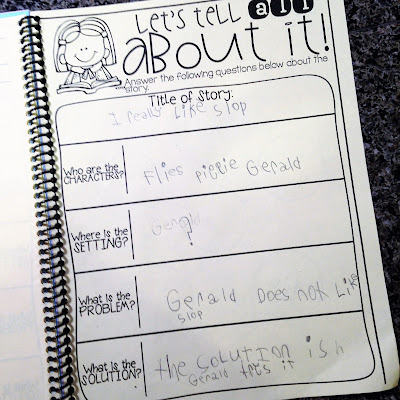 Let's tell all
About it!
Answer the following questions below about the
story.
Title of Story:
I really like slop
Who are the
CHARACTERS?
Flies piggie Gerald
Where is the
SETTING?
Gerald
?
What is the
PROBLEM?
Gerald Does not like
slop
What is the
SOLUTION?
the solution is
Gerald
it